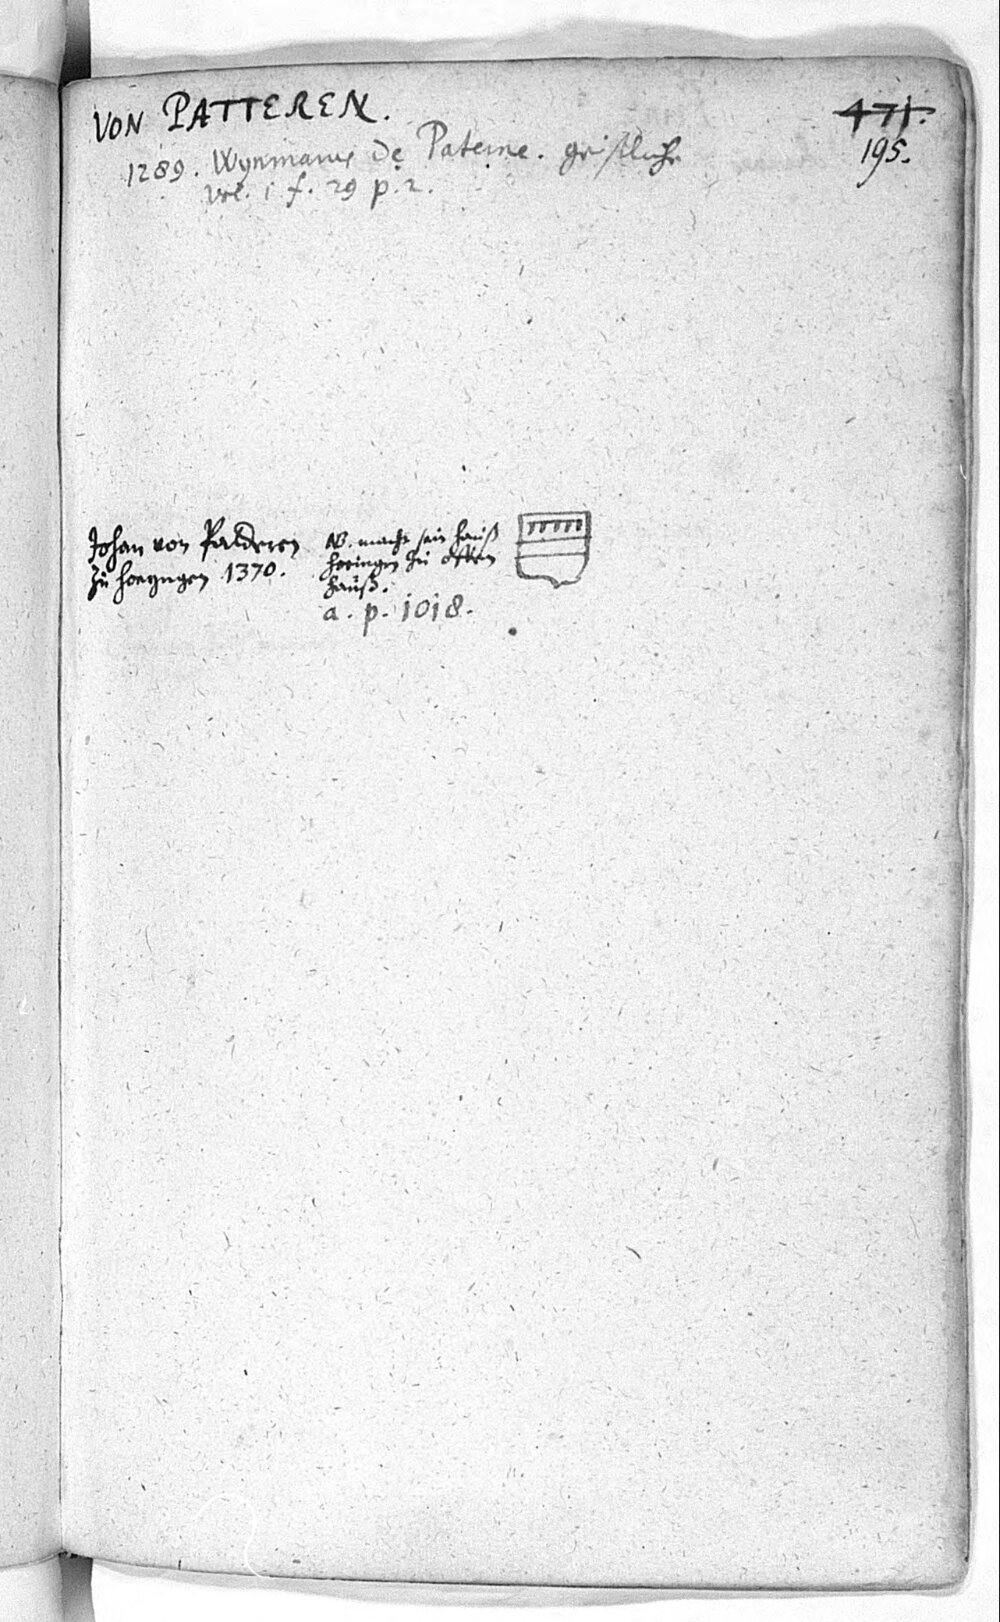 VON PATTEREN.
471.
195.
1289. Wynmanus de Paterne. geistlich
vol. i f. 29 p. 2.
Johan von Palderen
zu hoeyngen 1370.
NB. macht sein hauß
hoeingen zu offen
hauß.
a. p. 1018.